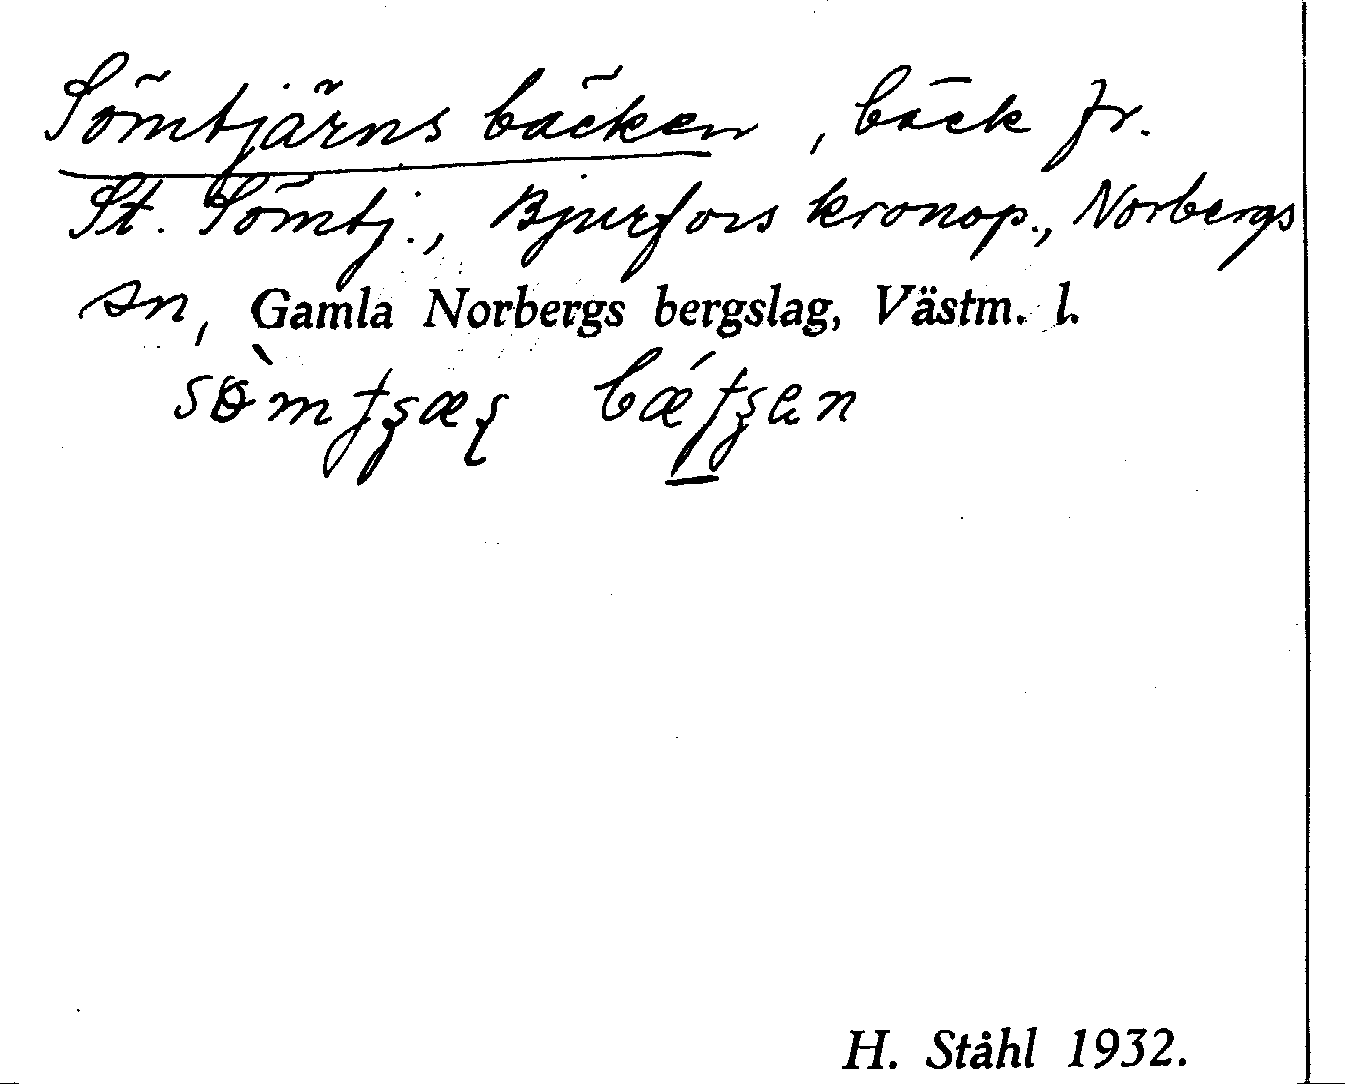 Sömtjärns bäcken, bäck fr.
St. Sömtj., Bjurfors kronop., Norbergs
sn, Gamla Norbergs bergslag, Västm. l.
H. Ståhl 1932.